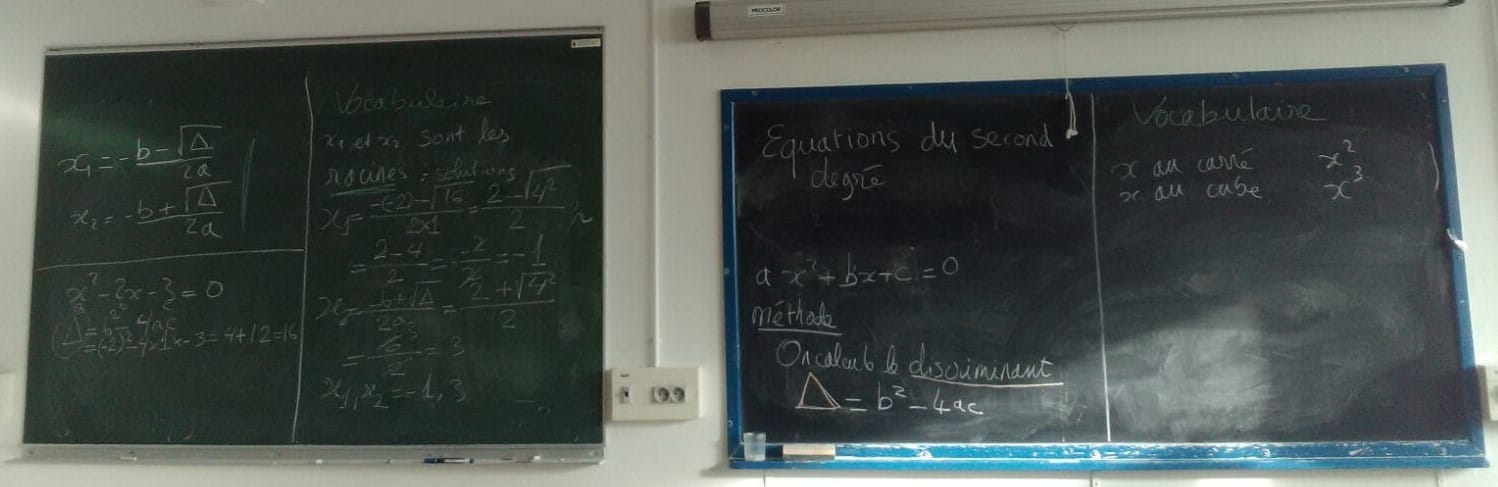 PROCOLOR
x₁ = -b - √Δ / 2a
x₂ = -b + √Δ / 2a
x² - 2x - 3 = 0
Δ = b² - 4ac
= (-2)² - 4×1×-3 = 4+12 = 16
Vocabulaire
x₁ et x₂ sont les
racines = solutions
x₁ = -(-2) - √16 / 2×1 = 2 - √4² / 2
= 2-4 / 2 = -2 / 2 = -1
x₂ = -b + √Δ / 2a = 2 + √4² / 2
= 6 / 2 = 3
x₁, x₂ = -1, 3
Equations du second
degré
ax² + bx + c = 0
méthode
On calcule le discriminant
Δ = b² - 4ac
Vocabulaire
x au carré x²
x au cube x³